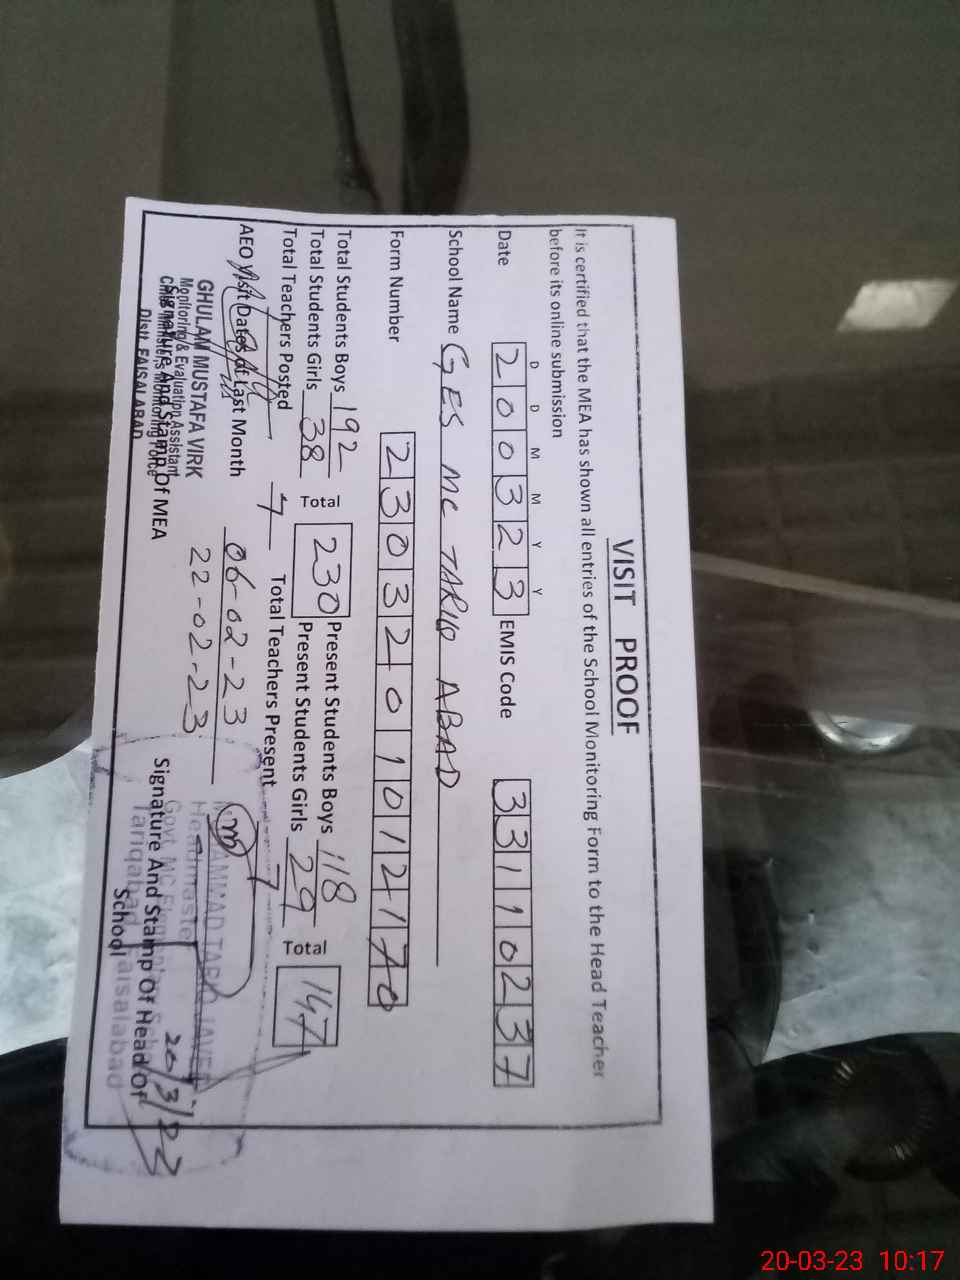 VISIT PROOF
It is certified that the MEA has shown all entries of the School Monitoring Form to the Head Teacher
before its online submission
D D M M Y Y
Date 200323 EMIS Code 33110237
School Name GES MC TARIQ ABAD
Form Number 23032010124170
Total Students Boys 192 Total 230 Present Students Boys 118 Total 147
Total Students Girls 38 Present Students Girls 29
Total Teachers Posted 7 Total Teachers Present 7
AEO Visit Dates of Last Month 06-02-23
22-02-23
GHULAM MUSTAFA VIRK
Monitoring & Evaluation Assistant
Chief Minister's Monitoring Force
Distt. FAISALABAD
Signature And Stamp Of MEA
Signature And Stamp Of Head Of
School
Headmaster
Govt. MC
Tariqabad Faisalabad
20-03-23 10:17